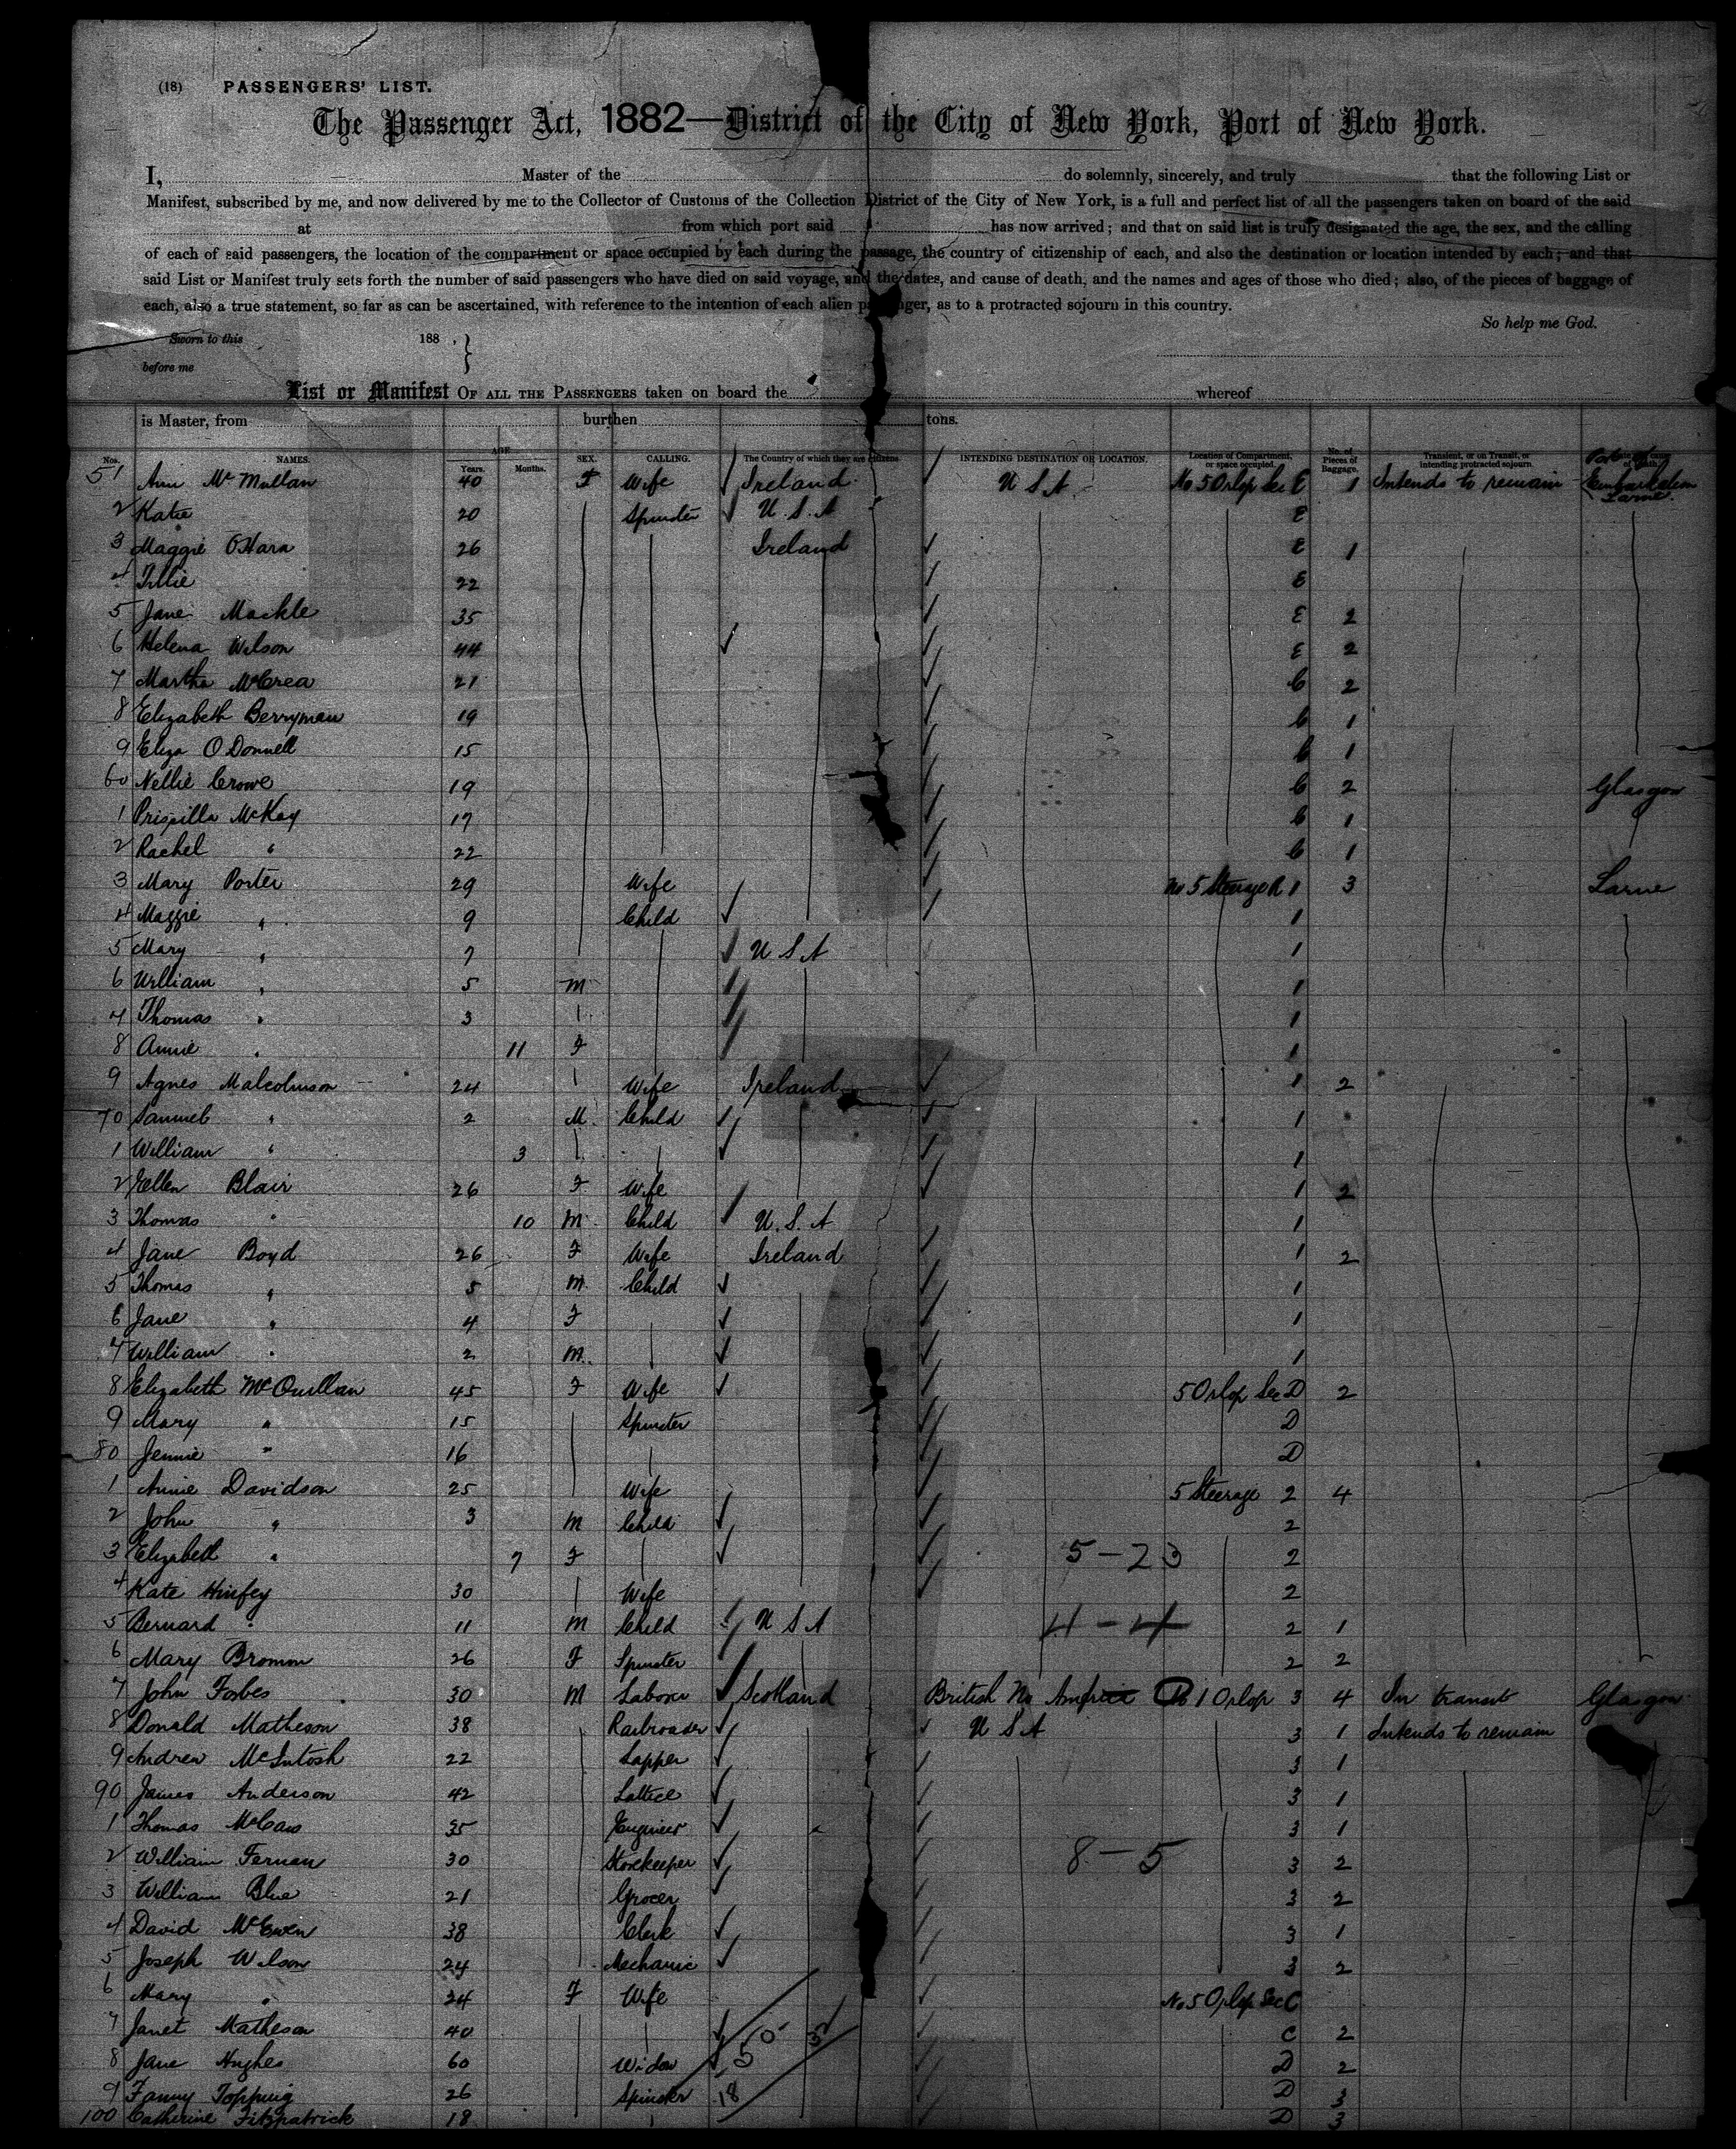 (18) PASSENGERS' LIST.
The Passenger Act, 1882—District of the City of New York, Port of New York.
I, Master of the do solemnly, sincerely, and truly that the following List or
Manifest, subscribed by me, and now delivered by me to the Collector of Customs of the Collection District of the City of New York, is a full and perfect list of all the passengers taken on board of the said
at from which port said has now arrived; and that on said list is truly designated the age, the sex, and the calling
of each of said passengers, the location of the compartment or space occupied by each during the passage, the country of citizenship of each, and also the destination or location intended by each; and that
said List or Manifest truly sets forth the number of said passengers who have died on said voyage, and the dates, and cause of death, and the names and ages of those who died; also, of the pieces of baggage of
each, also a true statement, so far as can be ascertained, with reference to the intention of each alien passenger, as to a protracted sojourn in this country.
So help me God.
Sworn to this 188 , }
before me
List or Manifest OF ALL THE PASSENGERS taken on board the whereof
is Master, from burthen tons.
Nos. NAMES. AGE Years. Months. SEX. CALLING. The Country of which they are citizens. INTENDING DESTINATION OR LOCATION. Location of Compartment, or space occupied. No. of Pieces of Baggage. Transient, or on Transit, or intending protracted sojourn. Embarkation
51 Ann McMullan 40 F Wife Ireland U S A No 5 Orlop Sec E 1 Intends to remain Larne
2 Katie 20 Spinster U. S. A E
3 Maggie O'Hara 26 Ireland E 1
4 Tillie 22 E
5 Jane Mackle 35 E 2
6 Helena Wilson 44 E 2
7 Martha McCrea 21 C 2
8 Elizabeth Berryman 19 C 1
9 Eliza O'Donnell 15 C 1
60 Nellie Crowe 19 C 2 Glasgow
1 Priscilla McKay 17 C 1
2 Rachel " 22 C 1
3 Mary Porter 29 Wife No 5 Steerage R 1 3 Larne
4 Maggie " 9 Child 1
5 Mary " 7 U S A 1
6 William " 5 M 1
7 Thomas " 3 1
8 Annie " 11 F 1
9 Agnes Malcolmson 24 Wife Ireland 1 2
70 Samuel " 2 M. Child 1
1 William " 3 1
2 Ellen Blair 26 F Wife 1 2
3 Thomas " 10 M Child U. S. A 1
4 Jane Boyd 26 F Wife Ireland 1 2
5 Thomas " 5 M. Child 1
6 Jane " 4 F 1
7 William " 2 M. 1
8 Elizabeth McQuillan 45 F Wife 5 Orlop Sec D 2
9 Mary " 15 Spinster D
80 Jennie " 16 D
1 Annie Davidson 25 Wife 5 Steerage 2 4
2 John " 3 M Child 2
3 Elizabeth " 7 F 5-23 2
4 Kate Hinfey 30 Wife 2
5 Bernard " 11 M Child U S A 4-4 2 1
6 Mary Bromon 26 F Spinster 2 2
7 John Forbes 30 M Laborer Scotland British No America No 1 Orlop 3 4 In transit Glasgow
8 Donald Matheson 38 Railroader U S A 3 1 Intends to remain
9 Andrew McIntosh 22 Lapper 3 1
90 James Anderson 42 3 1
1 Thomas McCaw 35 Engineer 3 1
2 William Fernan 30 Storekeeper 8-5 3 2
3 William Blue 21 Grocer 3 2
4 David McEwen 38 Clerk 3 1
5 Joseph Wilson 24 Mechanic 3 2
6 Mary " 24 F Wife No 5 Orlop Sec C
7 Janet Matheson 40 C 2
8 Jane Hughes 60 Widow 50 32 D 2
9 Fanny Topping 26 Spinster 18 D 3
100 Catherine Fitzpatrick 18 D 3